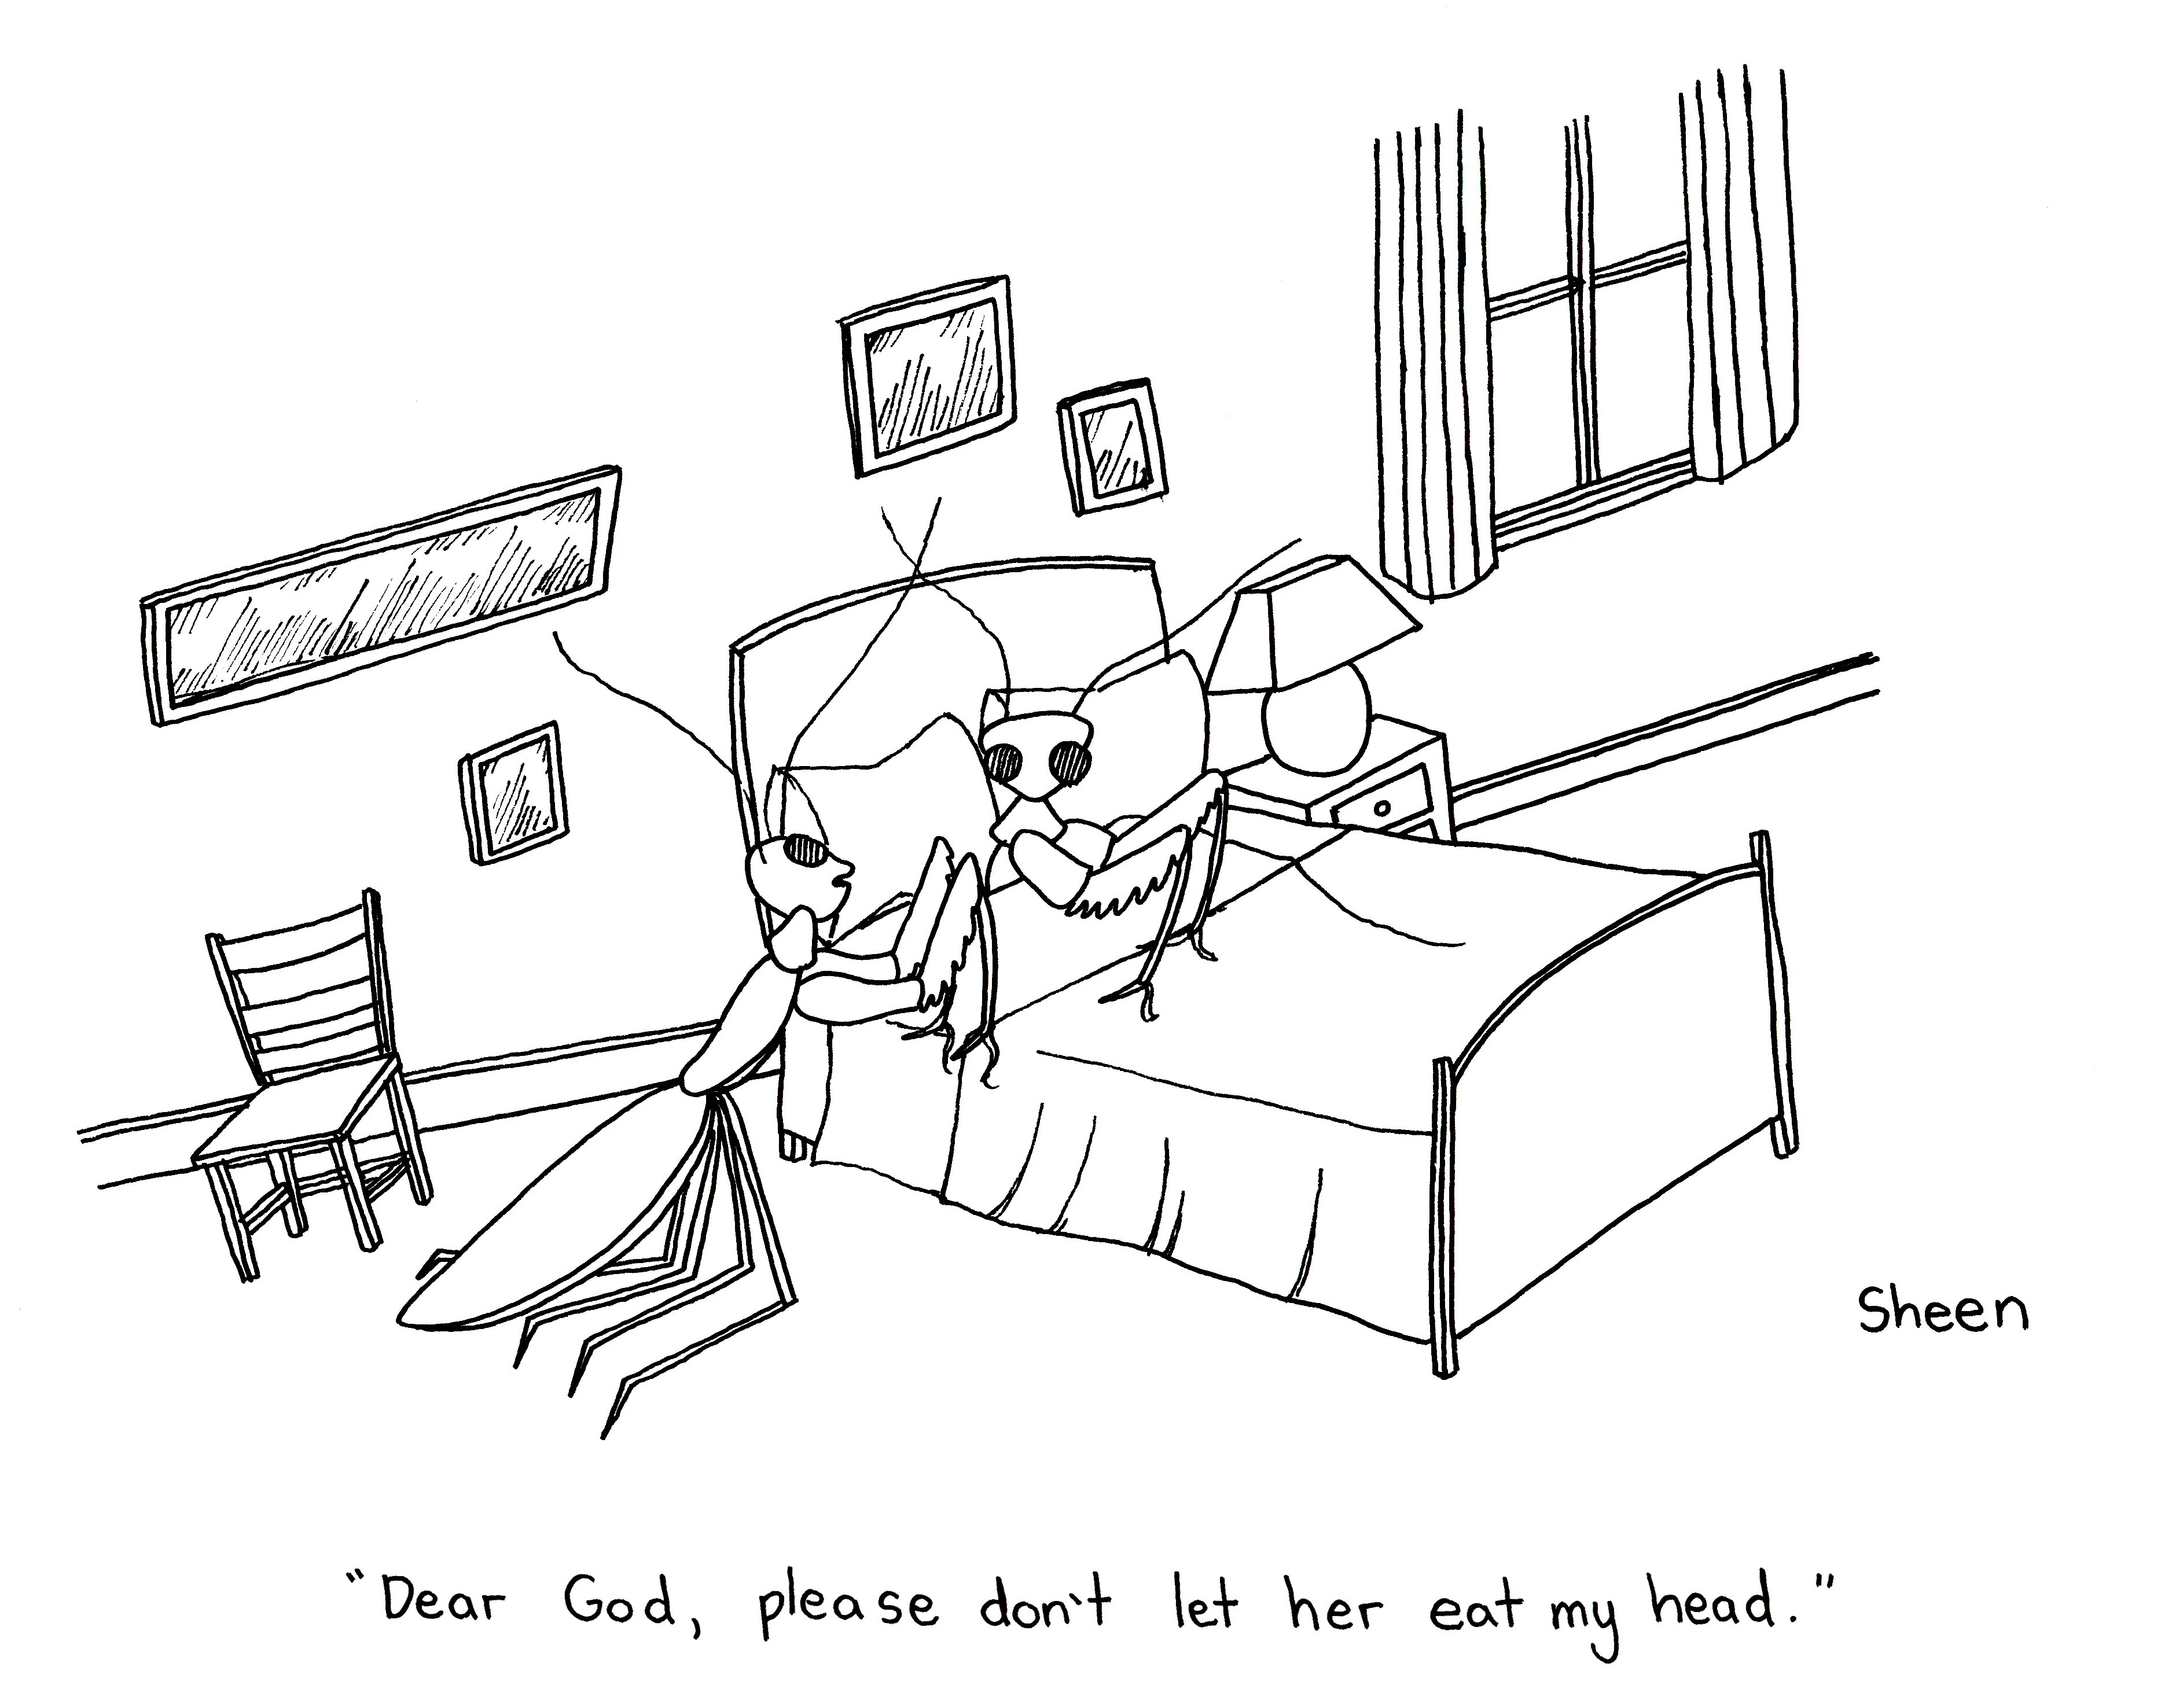 Sheen
"Dear God, please don't let her eat my head."